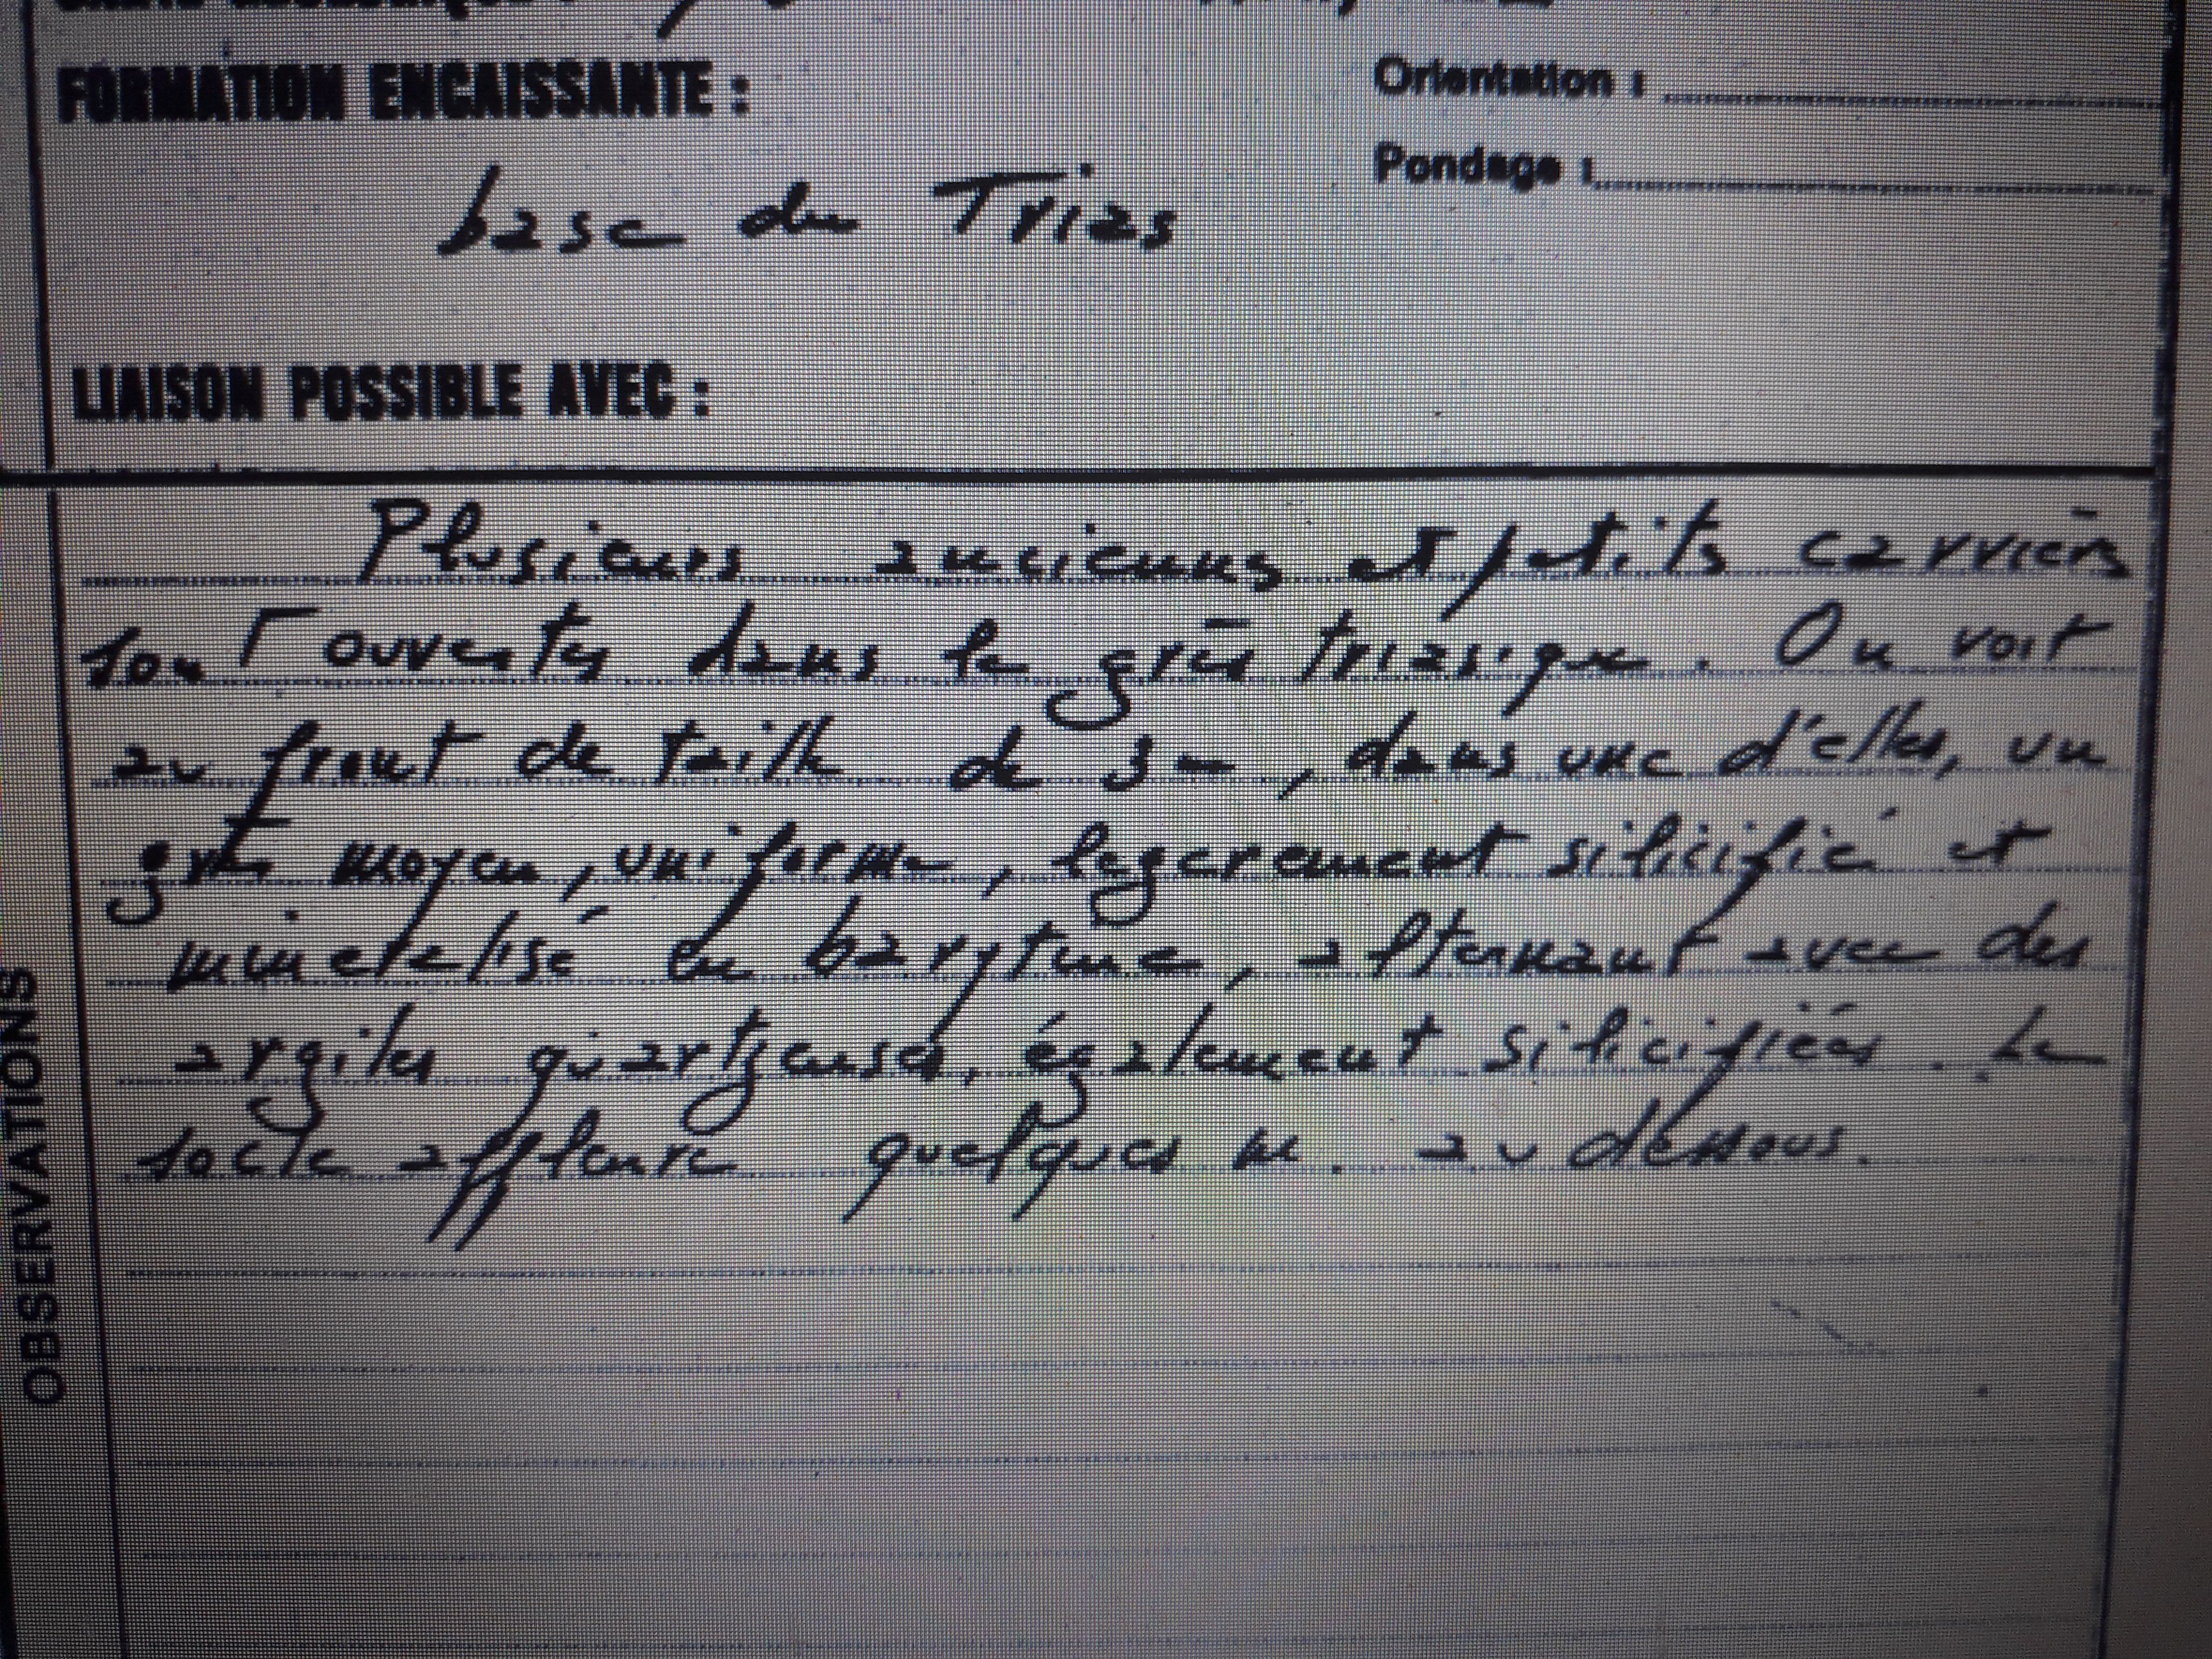 FORMATION ENCAISSANTE :
Orientation :
Pondage :
base du Trias
LIAISON POSSIBLE AVEC :
OBSERVATIONS
Plusieurs anciennes et petits carrières
sont ouvertes dans le grès triasique. On voit
au front de taille de 3 m, dans une d'elles, un
grès moyen, uniforme, legerement silicifié et
mineralisé en barytine, alternant avec des
argiles quartzeuses, également silicifiées. Le
socle affleure quelques m. au dessous.